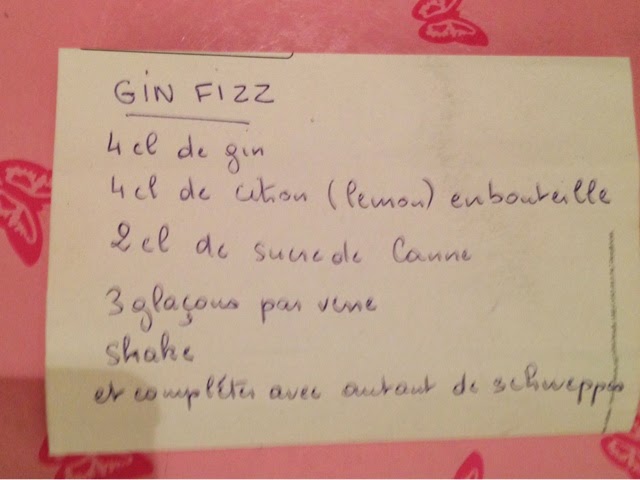 GIN FIZZ
4 cl de gin
4 cl de citron (lemon) en bouteille
2 cl de sucre de Canne
3 glaçons par verre
shake
et compléter avec autant de schweppes